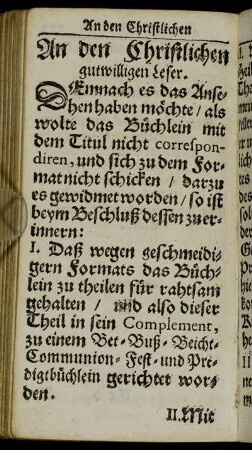 An den Christlichen
An den Christlichen
gutwilligen Leser.
DEmnach es das Anse-
hen haben möchte / als
wolte das Büchlein mit
dem Titul nicht correspon-
diren, und sich zu dem For-
mat nicht schicken / darzu
es gewidmet worden / so ist
beym Beschluß dessen zu er-
innern:
I. Daß wegen geschmeidi-
gern Formats das Büch-
lein zu theilen für rahtsam
gehalten / und also dieser
Theil in sein Complement,
zu einem Bet- Buß- Beicht-
Communion- Fest- und Pre-
digtbüchlein gerichtet wor-
den.
II. Mit